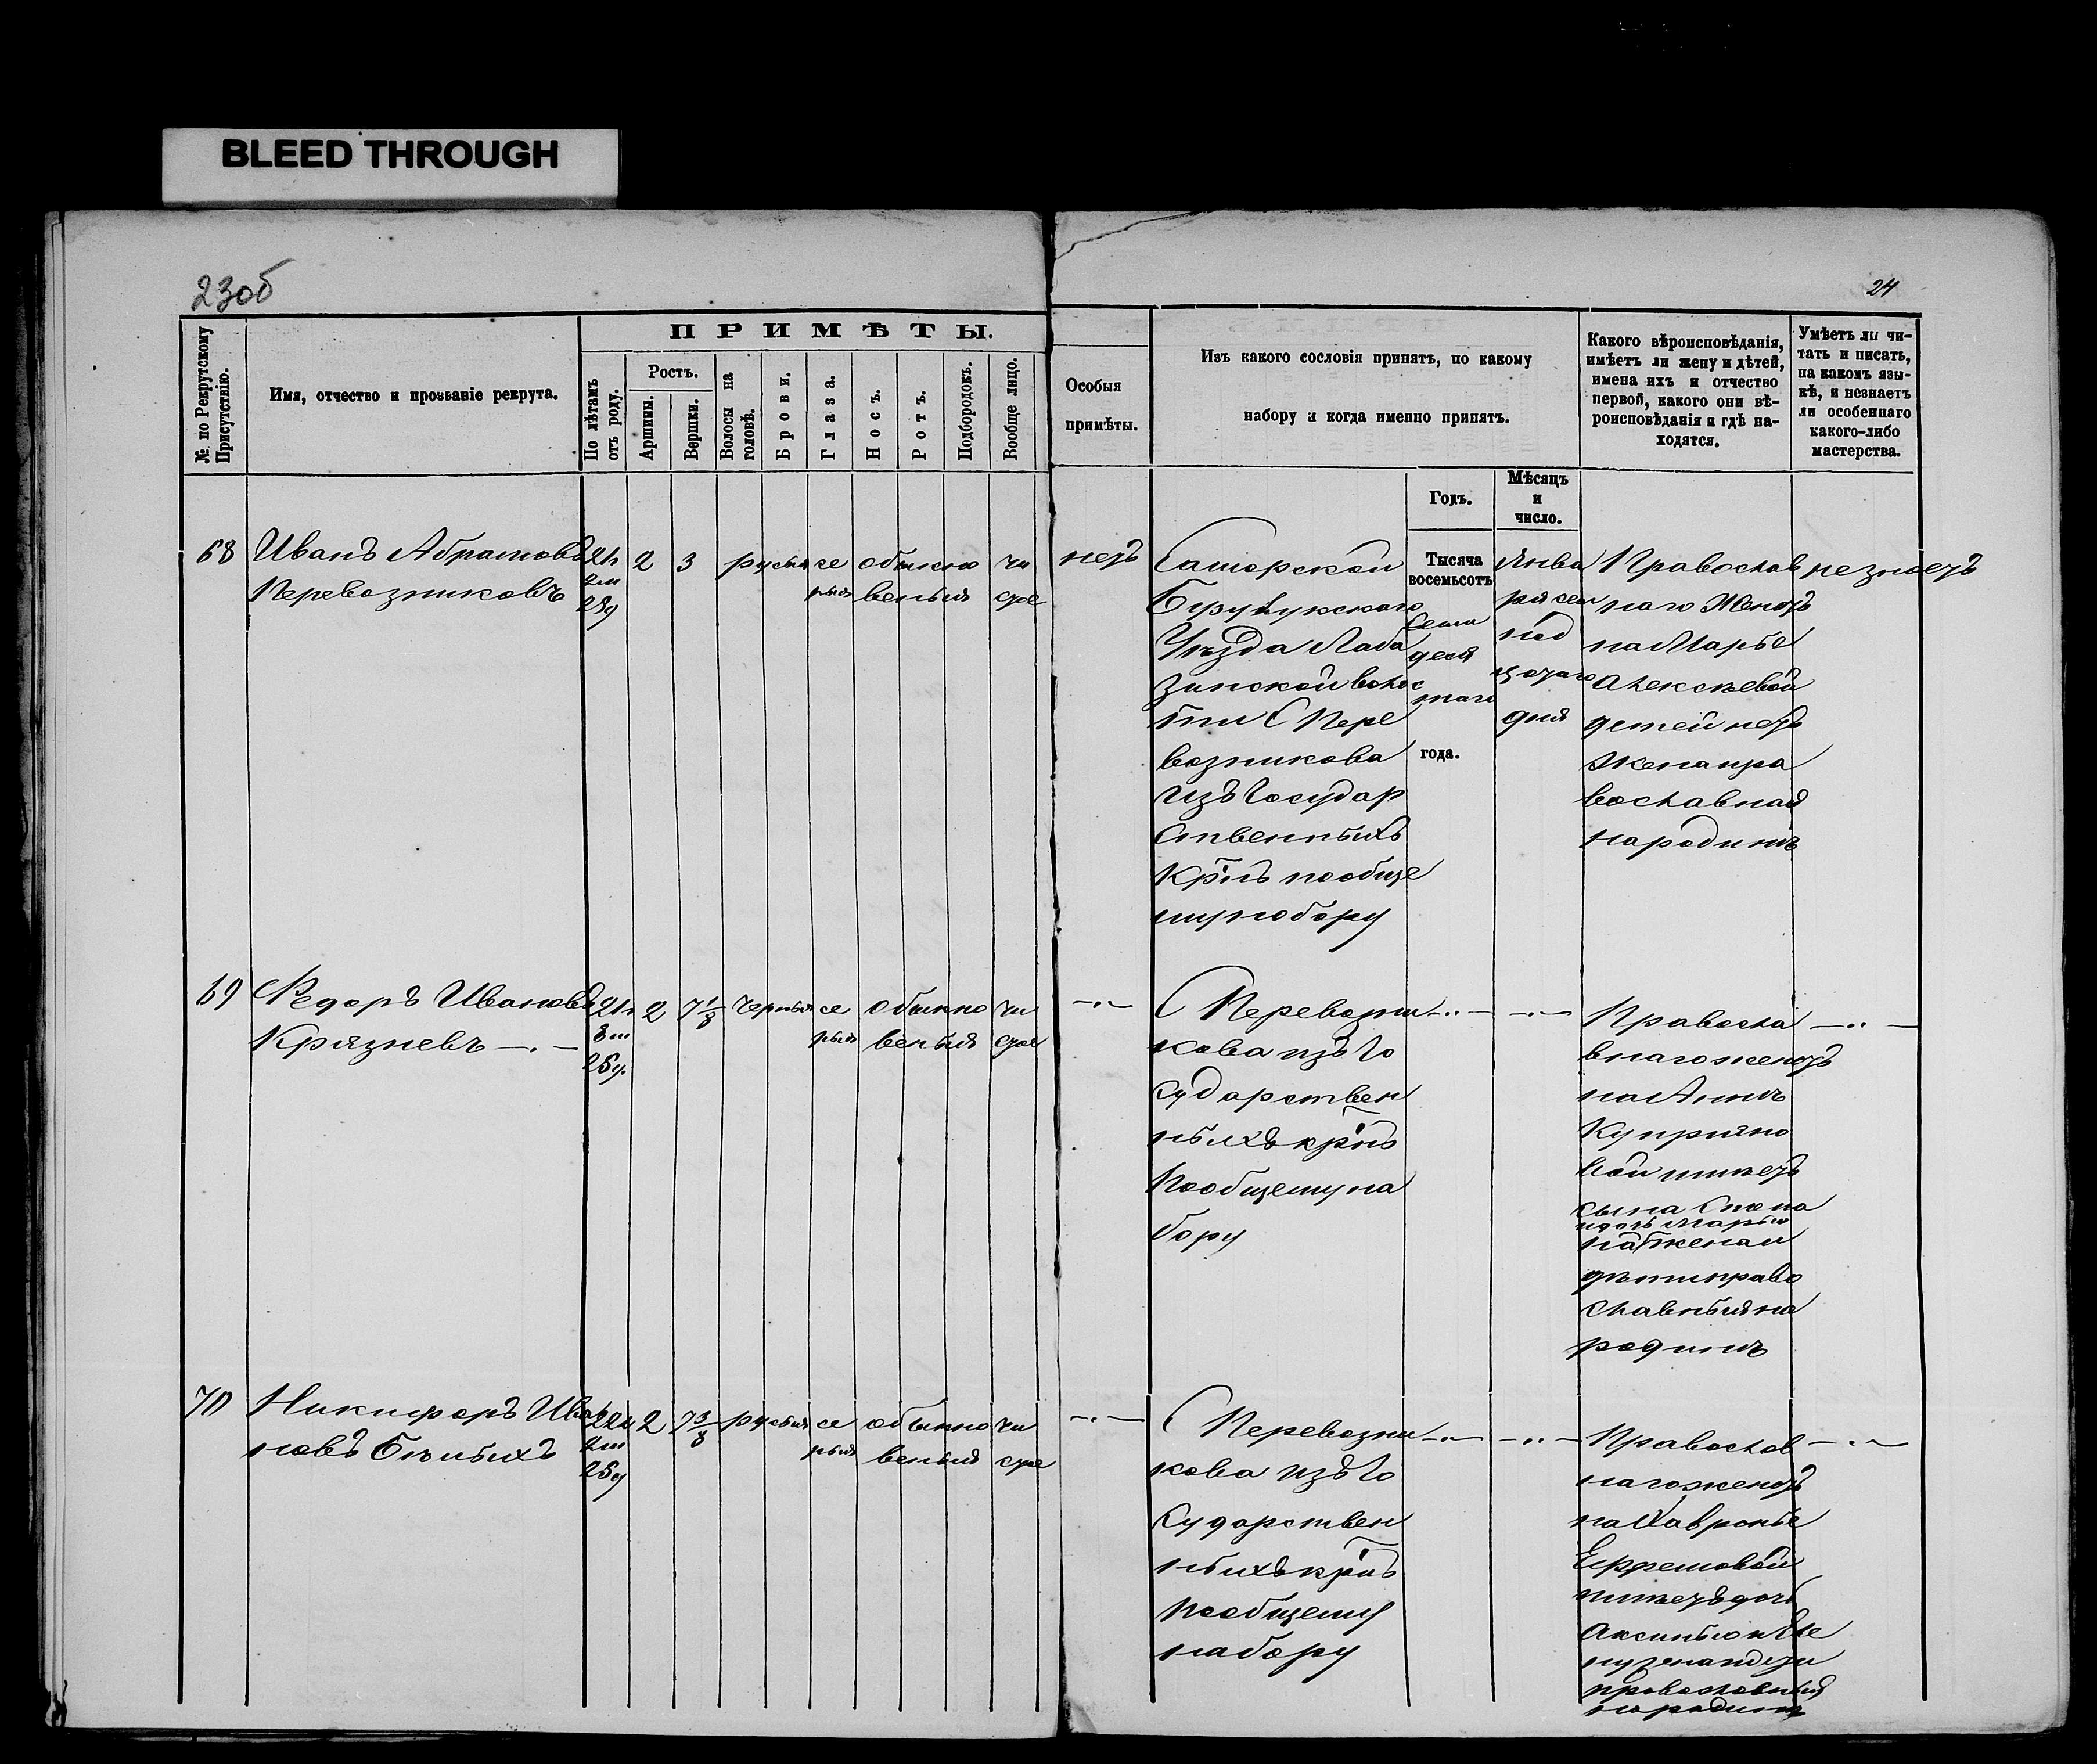 BLEED THROUGH
23об
24
№. по Рекрутскому
Присутствію.
Имя, отчество и прозваніе рекрута.
ПРИМѢТЫ.
По лѣтамъ
отъ роду.
Ростъ.
Аршины.
Вершки.
Волосы на
головѣ.
Брови.
Глаза.
Носъ.
Ротъ.
Подбородокъ.
Вообще лицо.
Особыя
примѣты.
Изъ какого сословія принятъ, по какому
набору и когда именно принятъ.
Какого вѣроисповѣданія,
имѣетъ ли жену и дѣтей,
имена ихъ и отчество
первой, какого они вѣ-
роисповѣданія и гдѣ на-
ходятся.
Умѣетъ ли чи-
тать и писать,
на какомъ язы-
кѣ, и незнаетъ
ли особеннаго
какого-либо
мастерства.
Годъ.
Мѣсяцъ
и
число.
68
Иванъ Абрамовъ
Перевозниковъ
21л
2м
28д
2
3
русыя
се
рыя
обыкно
веныя
чи
стое
нетъ
Самарской
Бузулукского
Уѣзда Лаба
зинской волос
ти С Пере
возникова
изъ Государ
ственныхъ
крнъ пообще
му набору
Тысяча
восемьсотъ
семи
деся
таго
года.
Янва
ря сем
над
цатаго
дня
Православ
наго Женатъ
на Марье
Алексѣевой
детей нетъ
жена пра
вославная
народинѣ
незнаетъ
69
Федоръ Ивановъ
Крязневъ —.—
21л
3м
25д.
2
7 1/8
черныя
се
рыя
обыкно
веныя
чи
стое
—..—
С Перевозни
кова изъ Го
сударствен
ныхъ крнъ
пообщему на
бору
—..—
—..—
Правосла
внаго женатъ
на Аннѣ
Куприяно
вой имѣетъ
сына Степа
идочь Марью
на жена и
дѣти право
славныя на
родинѣ
—..—
70
Никифоръ Ива
новъ Бѣлыхъ
22л
2м
25д
2
7 3/8
русыя
се
рыя
обыкно
веныя
чи
стое
—..—
С Перевозни
кова изъ Го
сударствен
ныхъ крнъ
пообщему
набору
—..—
—..—
Православ
наго женатъ
на Хавронье
Ефремовой
имѣетъ дочь
Аксинью
православныя
народинѣ
—..—